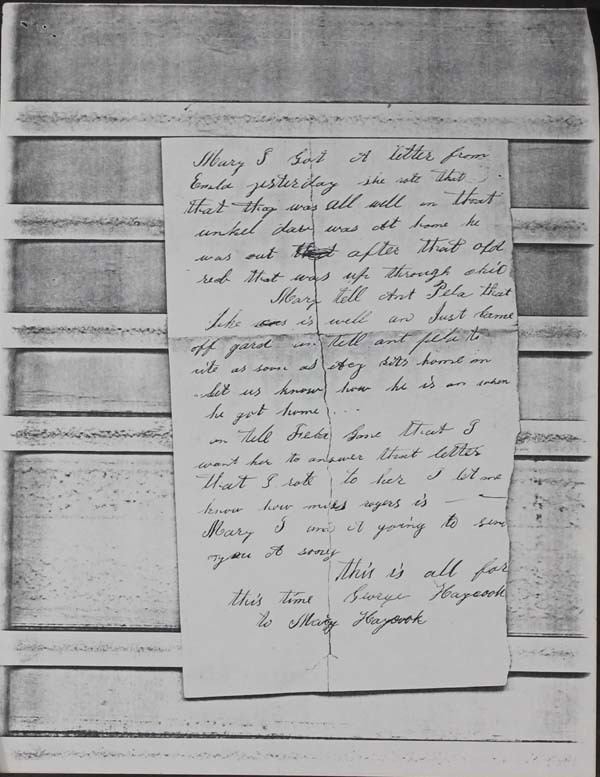 Mary I Got A letter from
Emla yesterday she rote that
that thay was All well an that
unkel was At home he
was out after that old
reb that was up through ohio
Mary tell Ant Pela that
like is well an Just Came
off gard an tell ant pela to
rite as soon as gits home an
let us know how he is an when
he got home
an tell Jane that I
want her to answer that letter
that I rote to her I let me
know how miss rogers is
Mary I am A going to sen
you A song
this is all for
this time George Haycook
to Mary Haycook